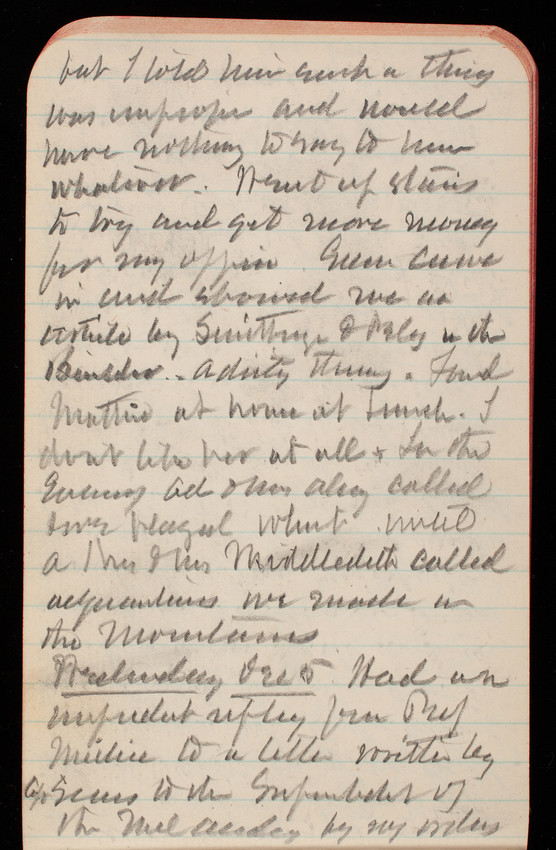 but I told him such a thing
was improper and would
have nothing to say to him
whatever. Went up stairs
to try and get more money
for my office Green came
in and showed me an
article by Smithmeyer & Pelz in the
Builder. A dirty thing. Found
Mattie at home at lunch. I
don't like her at all & In the
Evening Ad & Mrs called
and played whist until
a Mr & Mrs Middledith called
acquaintances we made in
the Mountains
Wednesday Dec 5 Had an
impudent reply from Prof
to a letter written by
Green to the Supntdent of
the by my orders